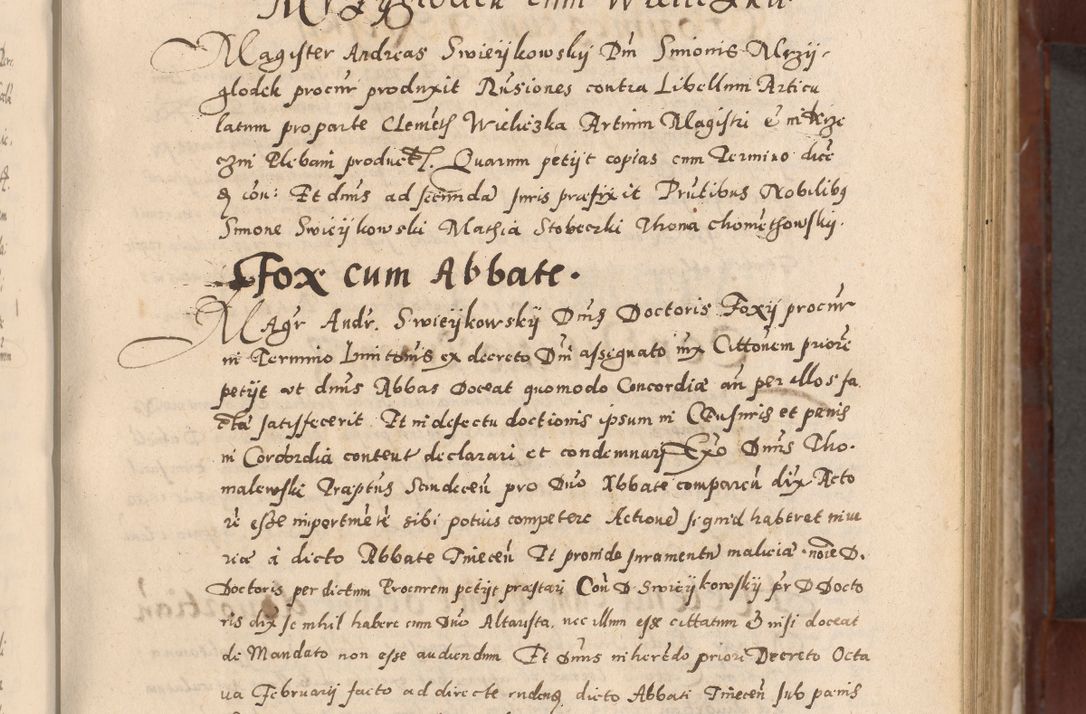 Mrzyglodek cum Wieliczka
Magister Andreas Swieijkowskij Dni Simonis Mrzij-
glodek procur produxit Rusiones contra Libellum Articu
latum pro parte Clemetis Wieliczka Artium Magistri & in Krze
czni Plebani product. Quarum petijt copias cum Termino dice
Et dnus ad secunda Juris praefixit Prntibus Nobilibus
Simone Swieijkowski Mathia Stobeczki Thoma Chomethowskij.
Fox cum Abbate.
Magr Andr. Swieijkowskij Dnj Doctoris Foxij procur
in Termino ex decreto Dni assegnato iux Cittonem priore
petijt ut dnus Abbas Doceat quomodo Concordiae an per illos fa
cta satisfecerit Et in defectu doctionis ipsum in Censuris et paenis
in Concordia content declarari et condemnari Exo Dnus Tho-
malewski Praeptus Scadecen pro Dno Abbate comparen dix Acto
re esse importune sibi potuis competere Actione si qmd haberet iniu
riae a dicto Abbate Tinecen Et proinde Juramentu malicia noie D.
Doctoris per dictum Procurem petijt praestari Con D. Swieijkowskij pr D Docto
ris dix se nihil habere cum Dno Altarista, nec illum esse cittatum & nisi doceat
de Mandato non esse audiendum Et Dnus inherendo priori Decreto Octa
va Februarij facto ad directe rndens dicto Abbati Tinecen sub paenis